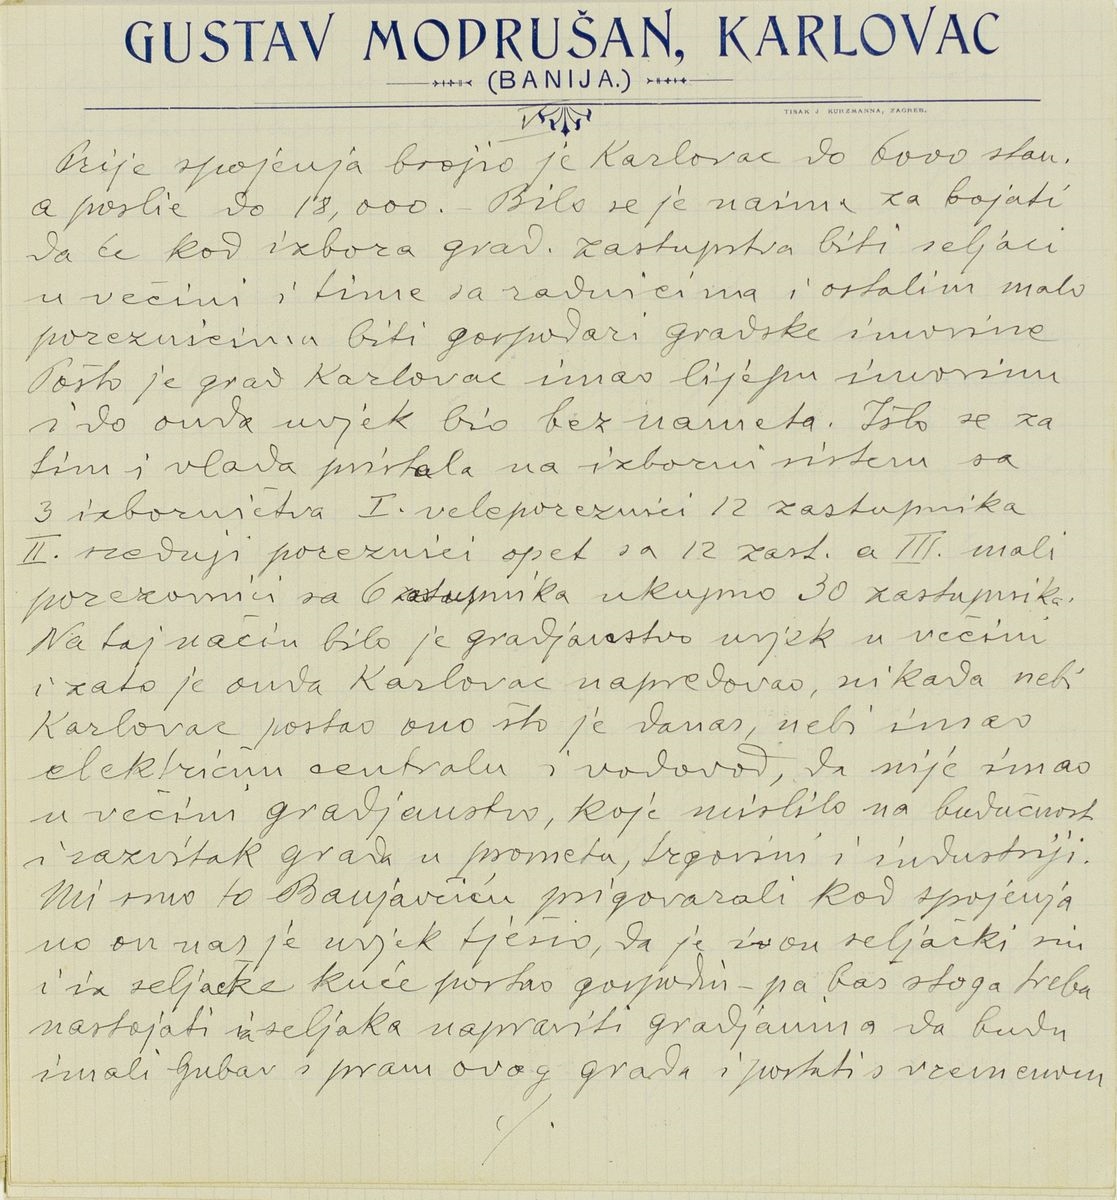 GUSTAV MODRUŠAN, KARLOVAC
(BANIJA.)
TISAK J. KURZMANNA, ZAGREB.
V
Prije spojenja brojio je Karlovac do 6000 stan.
a poslie do 18,000. – Bilo se je naima za bojati
da će kod izbora grad. zastupstva biti seljaci
u večini i time sa radnicima i ostalim malo
poreznicima biti gospodari gradske imovine
Pošto je grad Karlovac imao lijepu imovinu
i do onda uvjek bio bez nameta. Išlo se za
tim i vlada pristala na izborni sistem sa
3 izborničtva I. veleporeznici 12 zastupnika
II. srednji poreznici opet sa 12 zast. a III. mali
porezovnici sa 6 zastupnika ukupno 30 zastupnika.
Na taj način bilo je gradjanstvo uvjek u večini
i zato je onda Karlovac napredovao, nikada nebi
Karlovac postao ono što je danas, nebi imao
električnu centralu i vodovod, da nije imao
u večini gradjanstvo, koje mislilo na budučnost
i razvitak grada u prometu, trgovini i industriji.
Mi smo to Banjavčiću prigovarali kod spojenja
no on nas je uvjek tješio, da je i on seljački sin
i iz seljačke kuće postao gospodin – pa baš stoga treba
nastojati iz seljaka napraviti gradjanina da budu
imali ljubav s pram ovog grada i postati s vremenom
./.